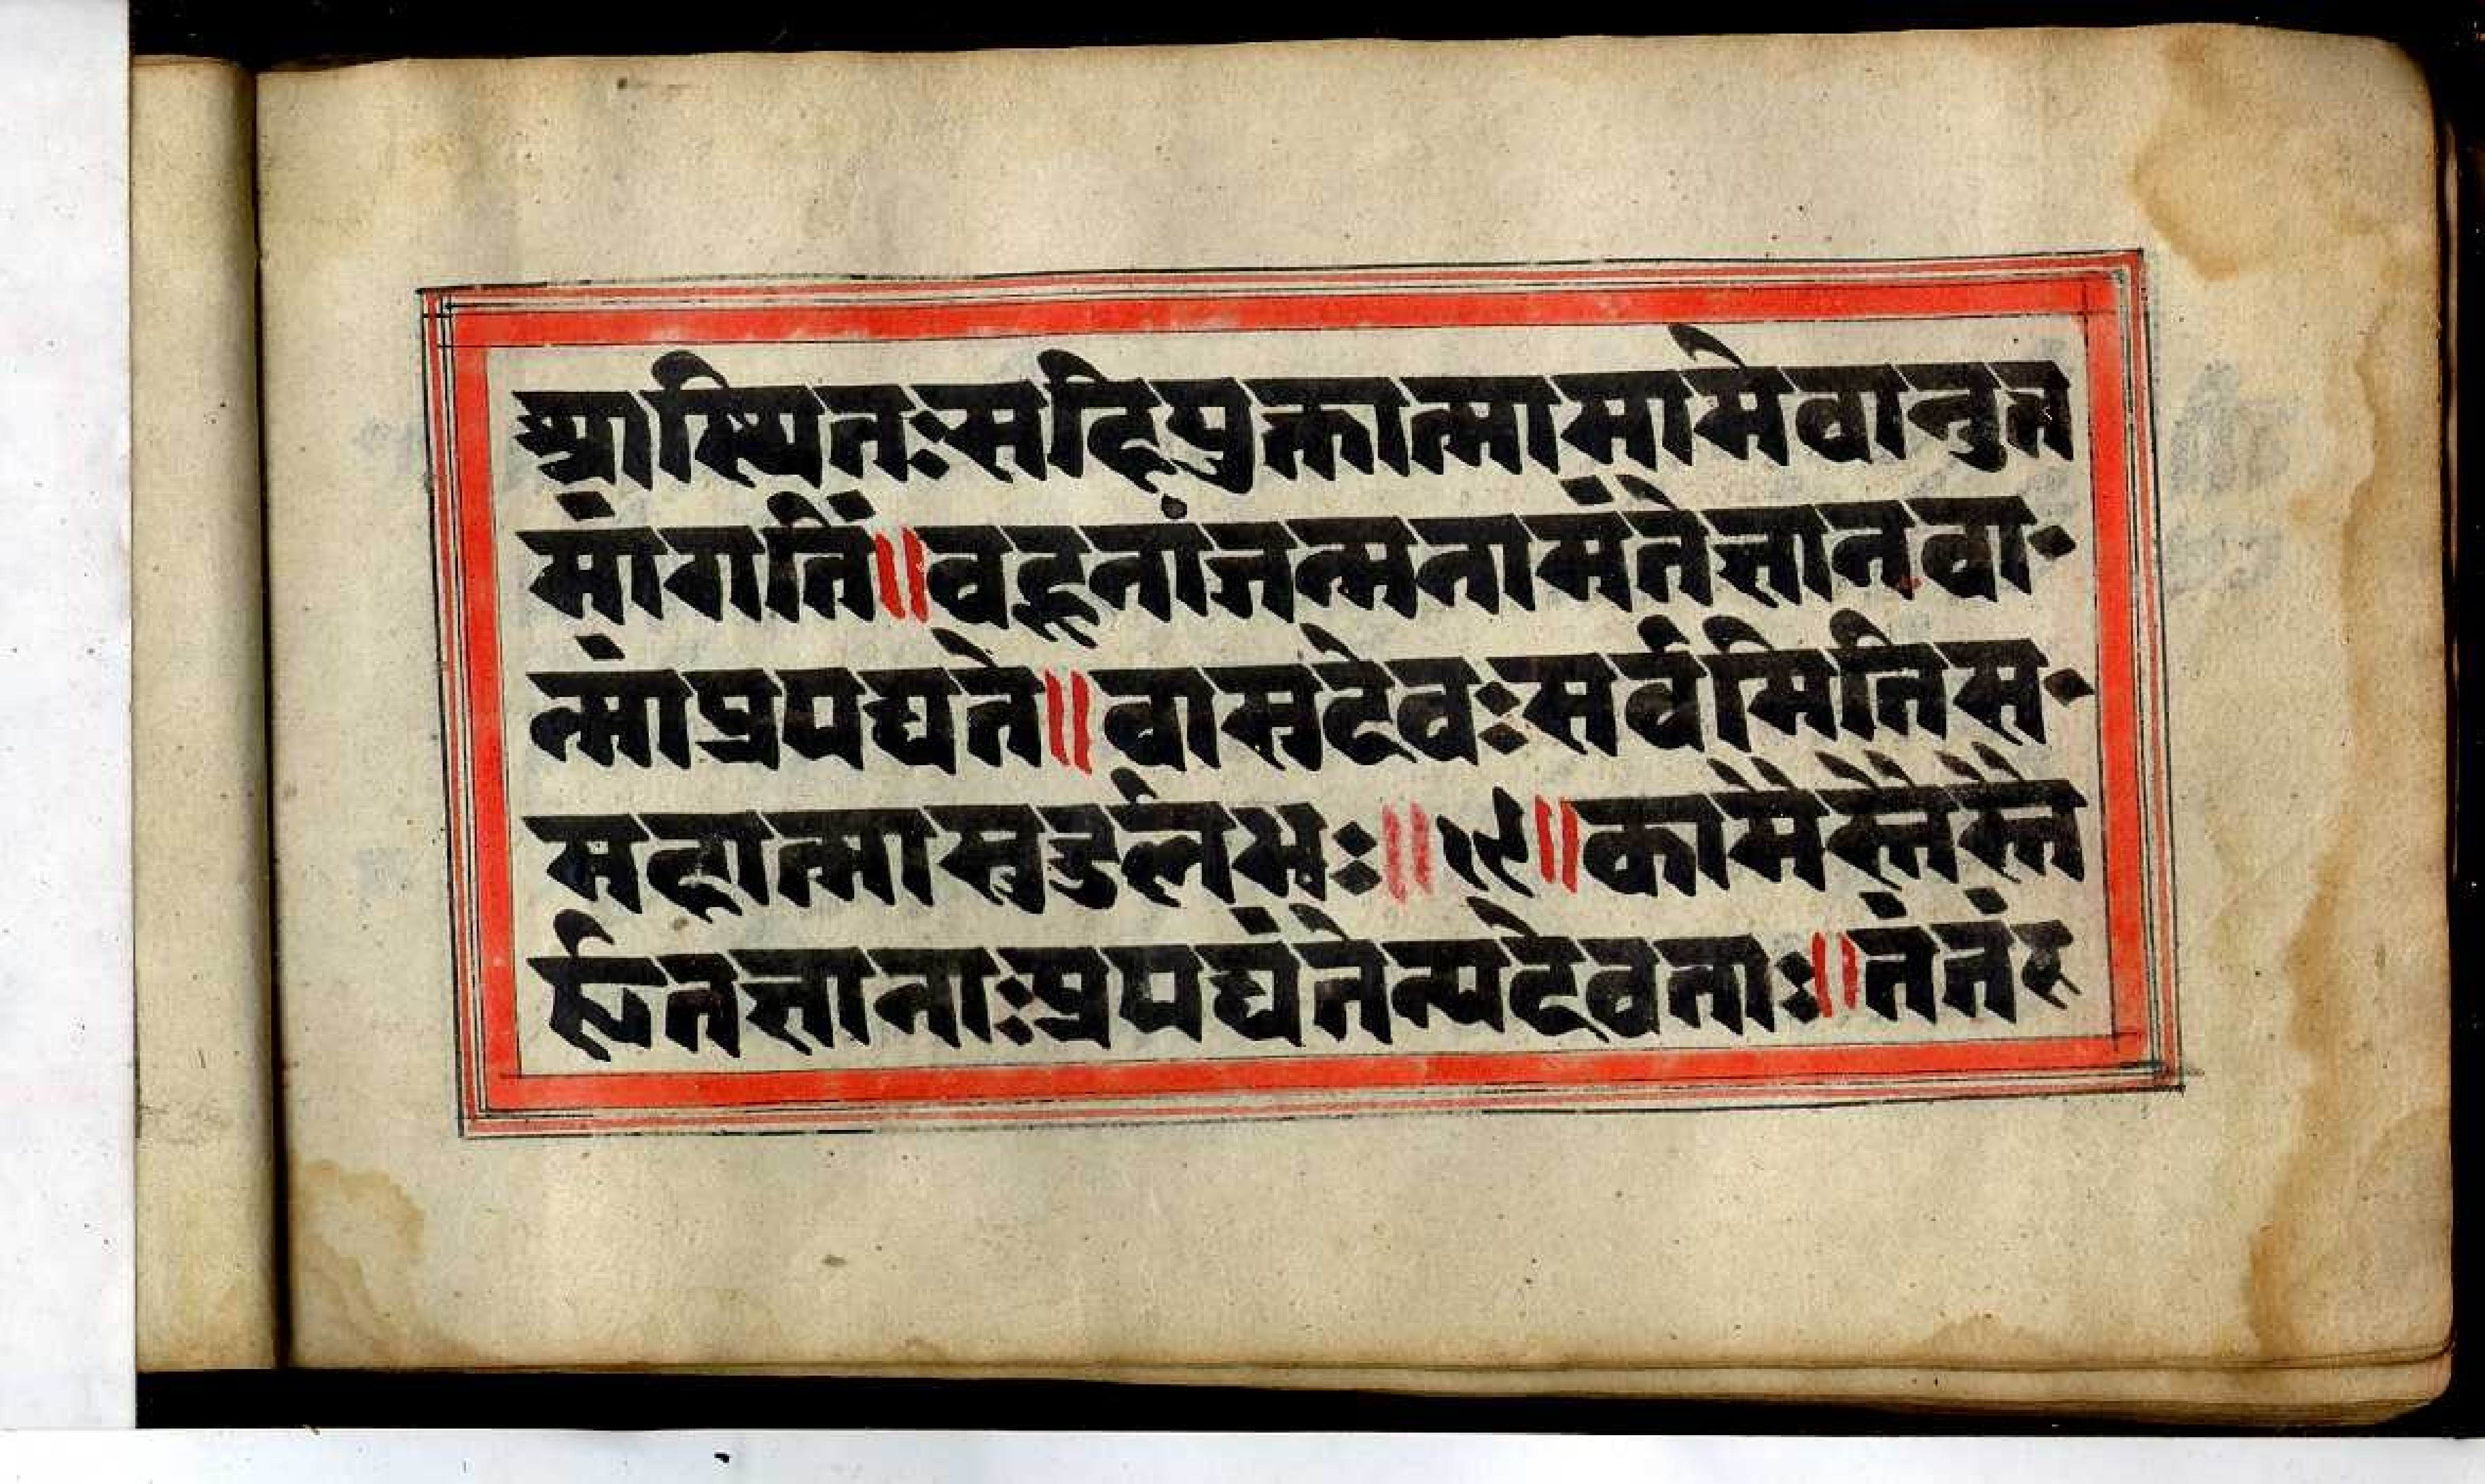 आस्थितःसहियुक्तात्मामामेवानुत्त
मांगतिं॥वहूनांजन्मनामंतेज्ञानवा
न्मांप्रपद्यते॥वासुदेवःसर्वमितिस
महात्मासुदुर्लभः॥१९॥कामैस्तैस्तै
र्हृतज्ञानाःप्रपद्यंतेन्यदेवताः॥तंतं